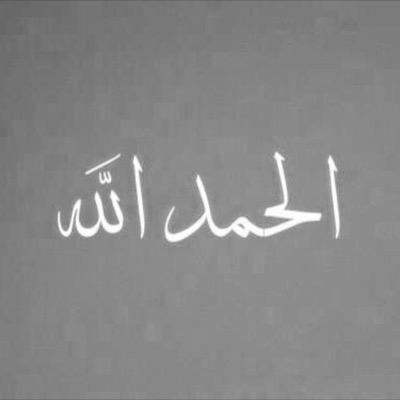 الحمد اللّٰه